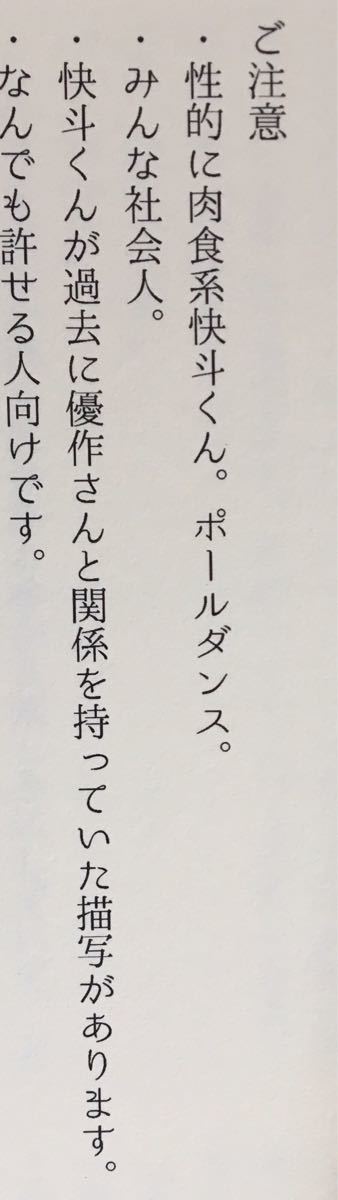 ご注意
・性的に肉食系快斗くん。ポールダンス。
・みんな社会人。
・快斗くんが過去に優作さんと関係を持っていた描写があります。
・なんでも許せる人向けです。